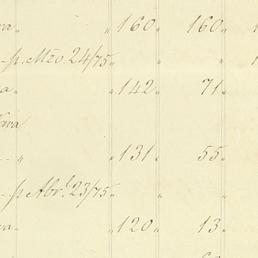 " 160 " 160 "
p. Mzo. 24/75 " " "
" 142 " 71 "
" 131 " 55 "
p Abr.l 23/75 " " "
" 120 " 13 "